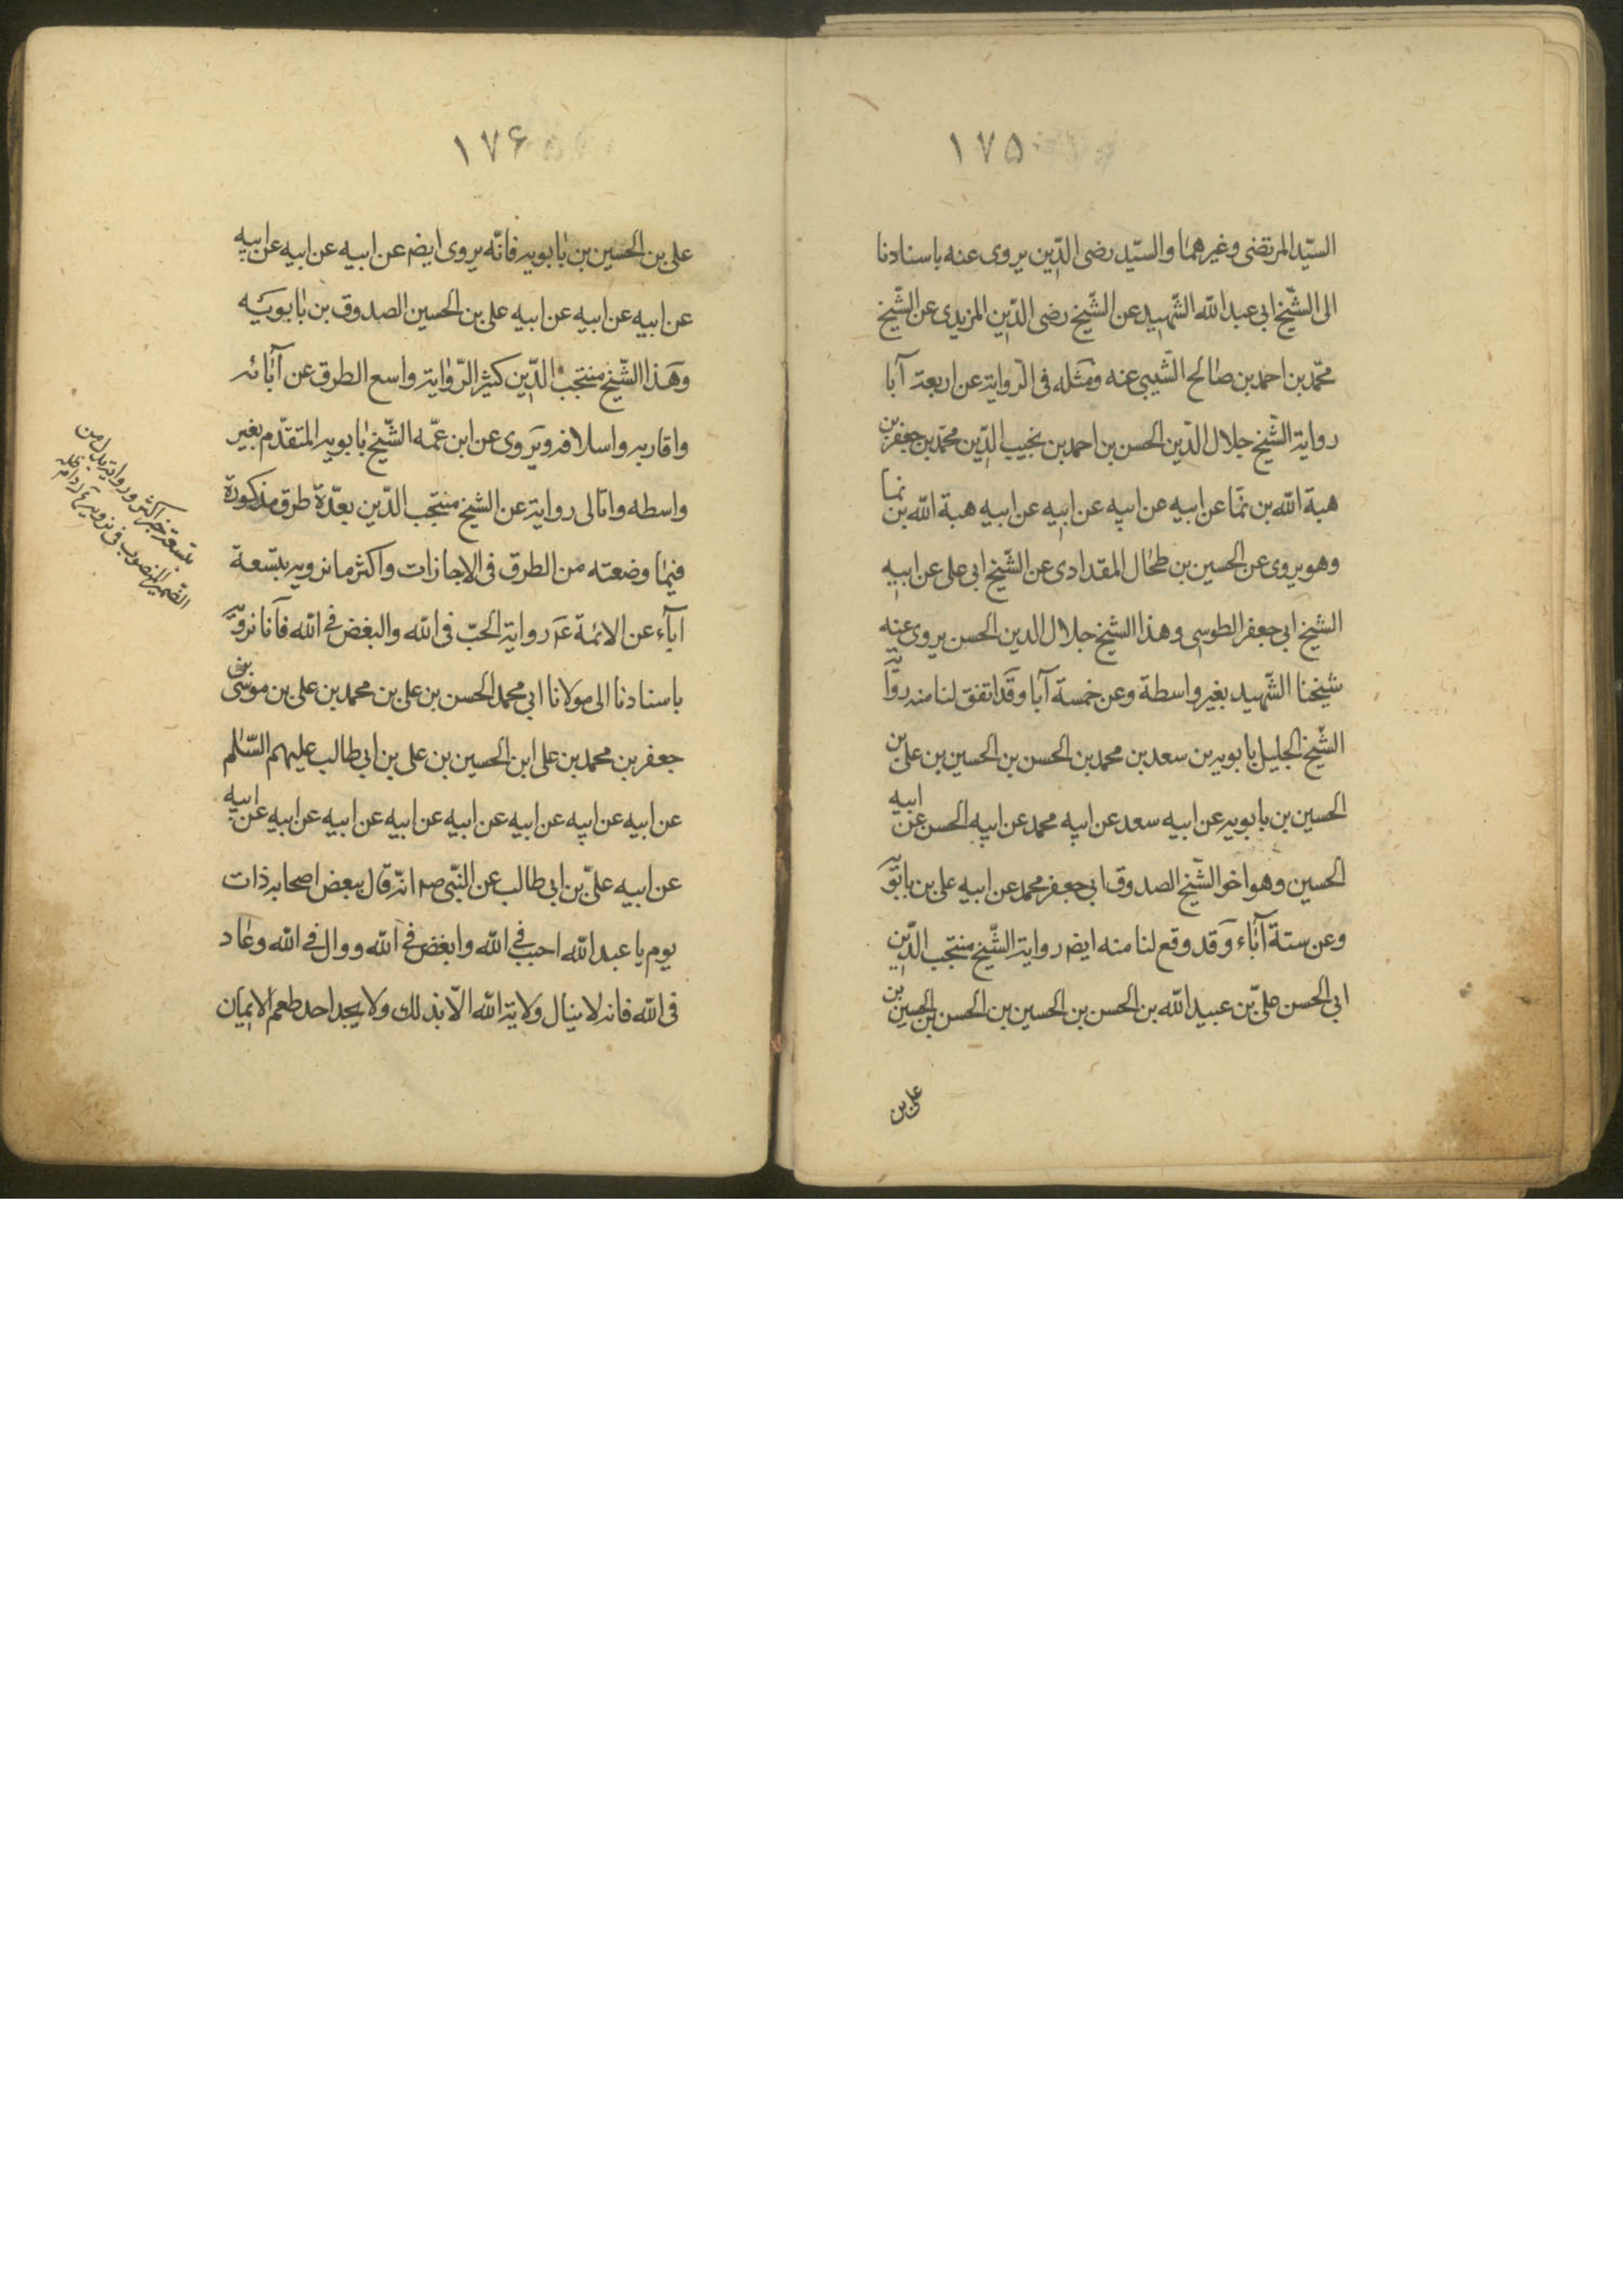 ١٧٥
السيّد المرتضى وغيرهما والسيّد رضى الدّين يروى عنه باسنادنا
الى الشّيخ ابى عبد الله الشّهيد عن الشّيخ رضى الدّين المزيدى عن الشّيخ
محمّد بن احمد بن صالح السّيبى عنه ومثله فى الرواية عن اربعة آبا
رواية الشّيخ جلال الدّين الحسن بن احمد بن نجيب الدّين محمّد بن جعفر بن
هبة الله بن نما عن ابيه عن ابيه عن ابيه عن ابيه هبة الله بن نما
وهو يروى عن الحسين بن طحال المقدادى عن الشّيخ ابى على عن ابيه
الشيخ ابى جعفر الطوسى وهذا الشيخ جلال الدين الحسن يروى عنه
شيخنا الشّهيد بغير واسطة وعن خمسة آبا وقد اتفق لنا منه رواية
الشّيخ الجليل بابويه بن سعد بن محمد بن الحسن بن الحسين بن على بن
الحسين بن بابويه عن ابيه سعد عن ابيه محمد عن ابيه الحسن عن ابيه
الحسين وهو اخو الشّيخ الصدوق ابى جعفر محمد عن ابيه على بن بابويه
وعن ستة آباء وقد وقع لنا منه ايض رواية الشّيخ منتجب الدّين
ابى الحسن علىّ بن عبيد الله بن الحسن بن الحسين بن الحسن بن الحسين بن
على بن
١٧۶
على بن الحسين بن بابويه فانّه يروى ايض عن ابيه عن ابيه عن ابيه
عن ابيه عن ابيه عن ابيه على بن الحسين الصدوق بن بابويه
وهذا الشّيخ منتجب الدّين كثير الرّواية واسع الطرق عن آبائه
واقاربه واسلافه ويروى عن ابن عمّه الشّيخ بابويه المتقدّم بغير
واسطه وانا لى رواية عن الشيخ منتجب الدّين بعدّة طرق مذكورة
فيما وضعته من الطرق فى الاجازات واكثر ما نرويه بتسعة
آباء عن الائمة ع رواية الحبّ فى الله والبغض فى الله فانا نرويه
باسنادنا الى مولانا ابى محمد الحسن بن على بن محمد بن على بن موسى بن
جعفر بن محمد بن على ابن الحسين بن على بن ابى طالب عليهم السّلم
عن ابيه عن ابيه عن ابيه عن ابيه عن ابيه عن ابيه عن ابيه عن ابيه
عن ابيه علىّ بن ابى طالب عن النّبى ص انه قال لبعض اصحابه ذات
يوم يا عبد الله احبب فى الله وابغض فى الله ووال فى الله وعاد
فى الله فانه لا ينال ولاية الله الّا بذلك ولا يجد احد طعم الايمان
بتسعة خبر اكثر ورواية بدل من
الضمير المنصوب فى نرويه